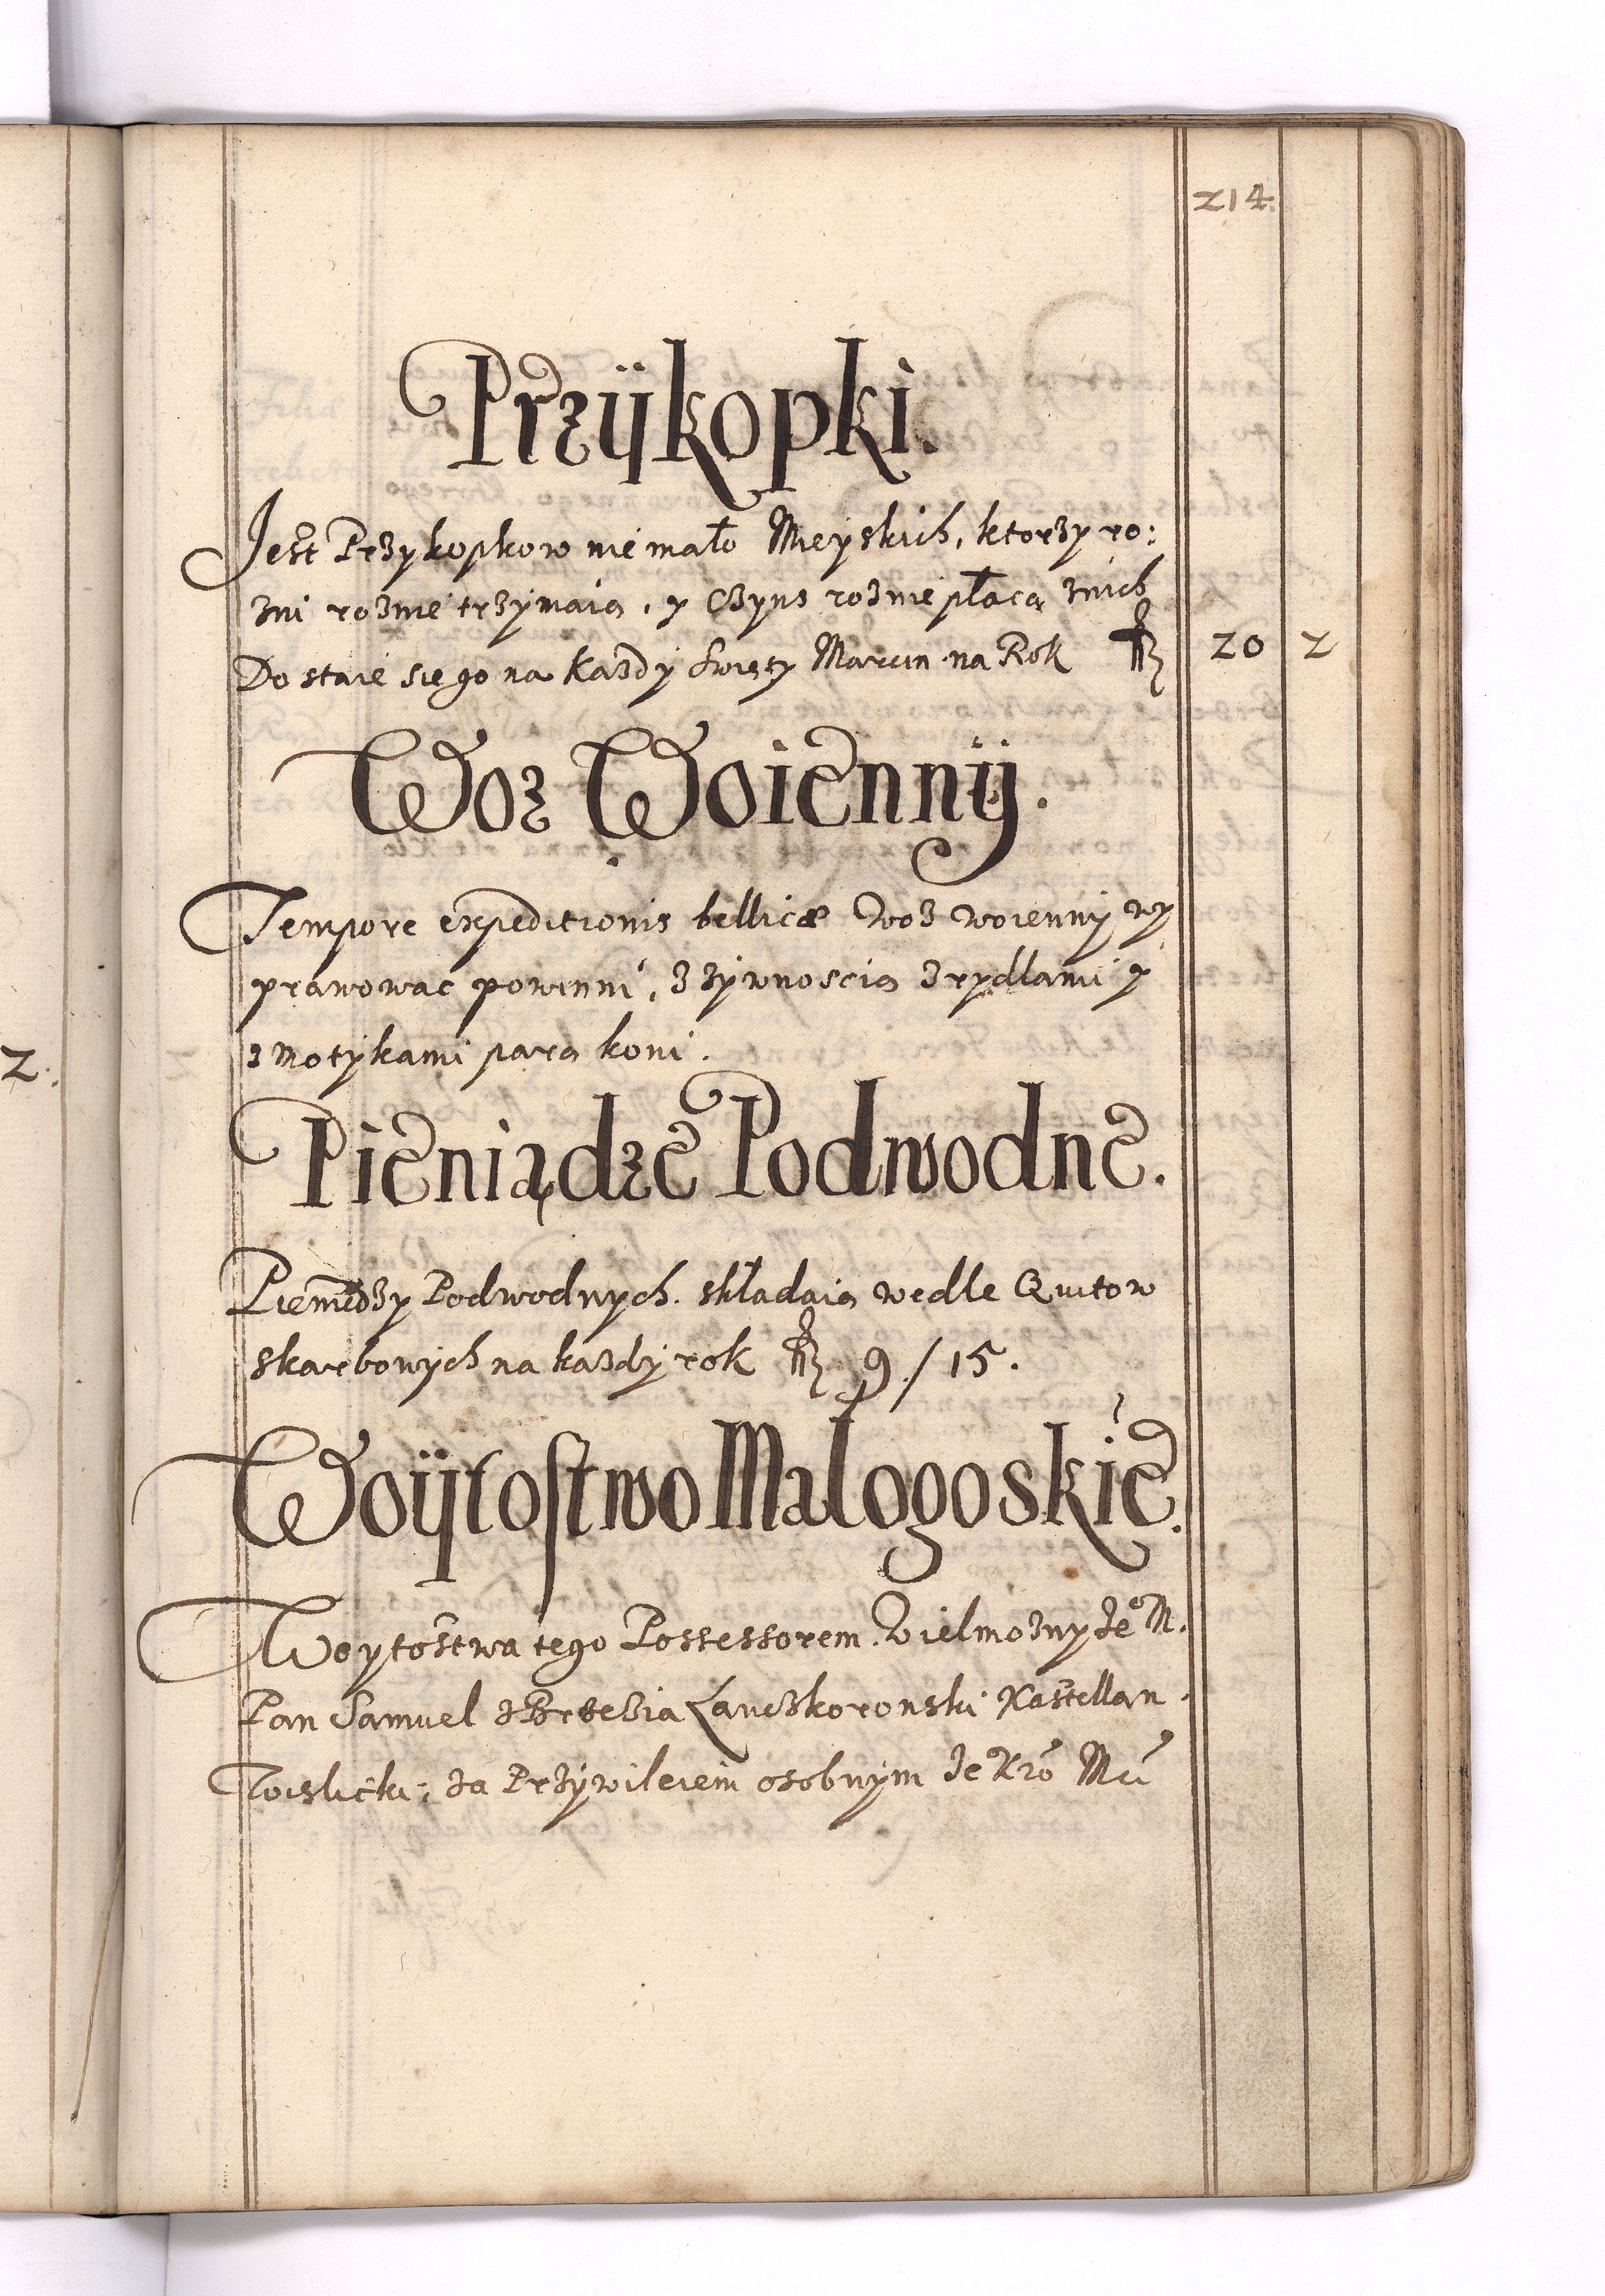 214.
Przÿkopki.
Jest Przykopkow nie mało Mieyskich, ktorzy ro:
zni roznie trzymaią, y Czyns roznie płacą znich
Dostaie sie go na Kazdy Swięty Marcin na Rok 20 2
Woz Woiennÿ.
Tempore expeditionis bellicæ woz woienny wy
prawowac powinni, z zywnoscią z rydlami y
z motykami parą koni.
Pieniądze Podwodne.
Pieniędzy Podwodnych składaią wedle Quitow
skarbowych na kazdy rok 9/15.
Woÿtostwo Malogoskie.
Woytostwa tego Possessorem Wielmozny Je° M.
Pan Samuel z Brzezia Lanczkoronski Kasztellan
za Przywileiem osobnym Je° Kro Mci
2.